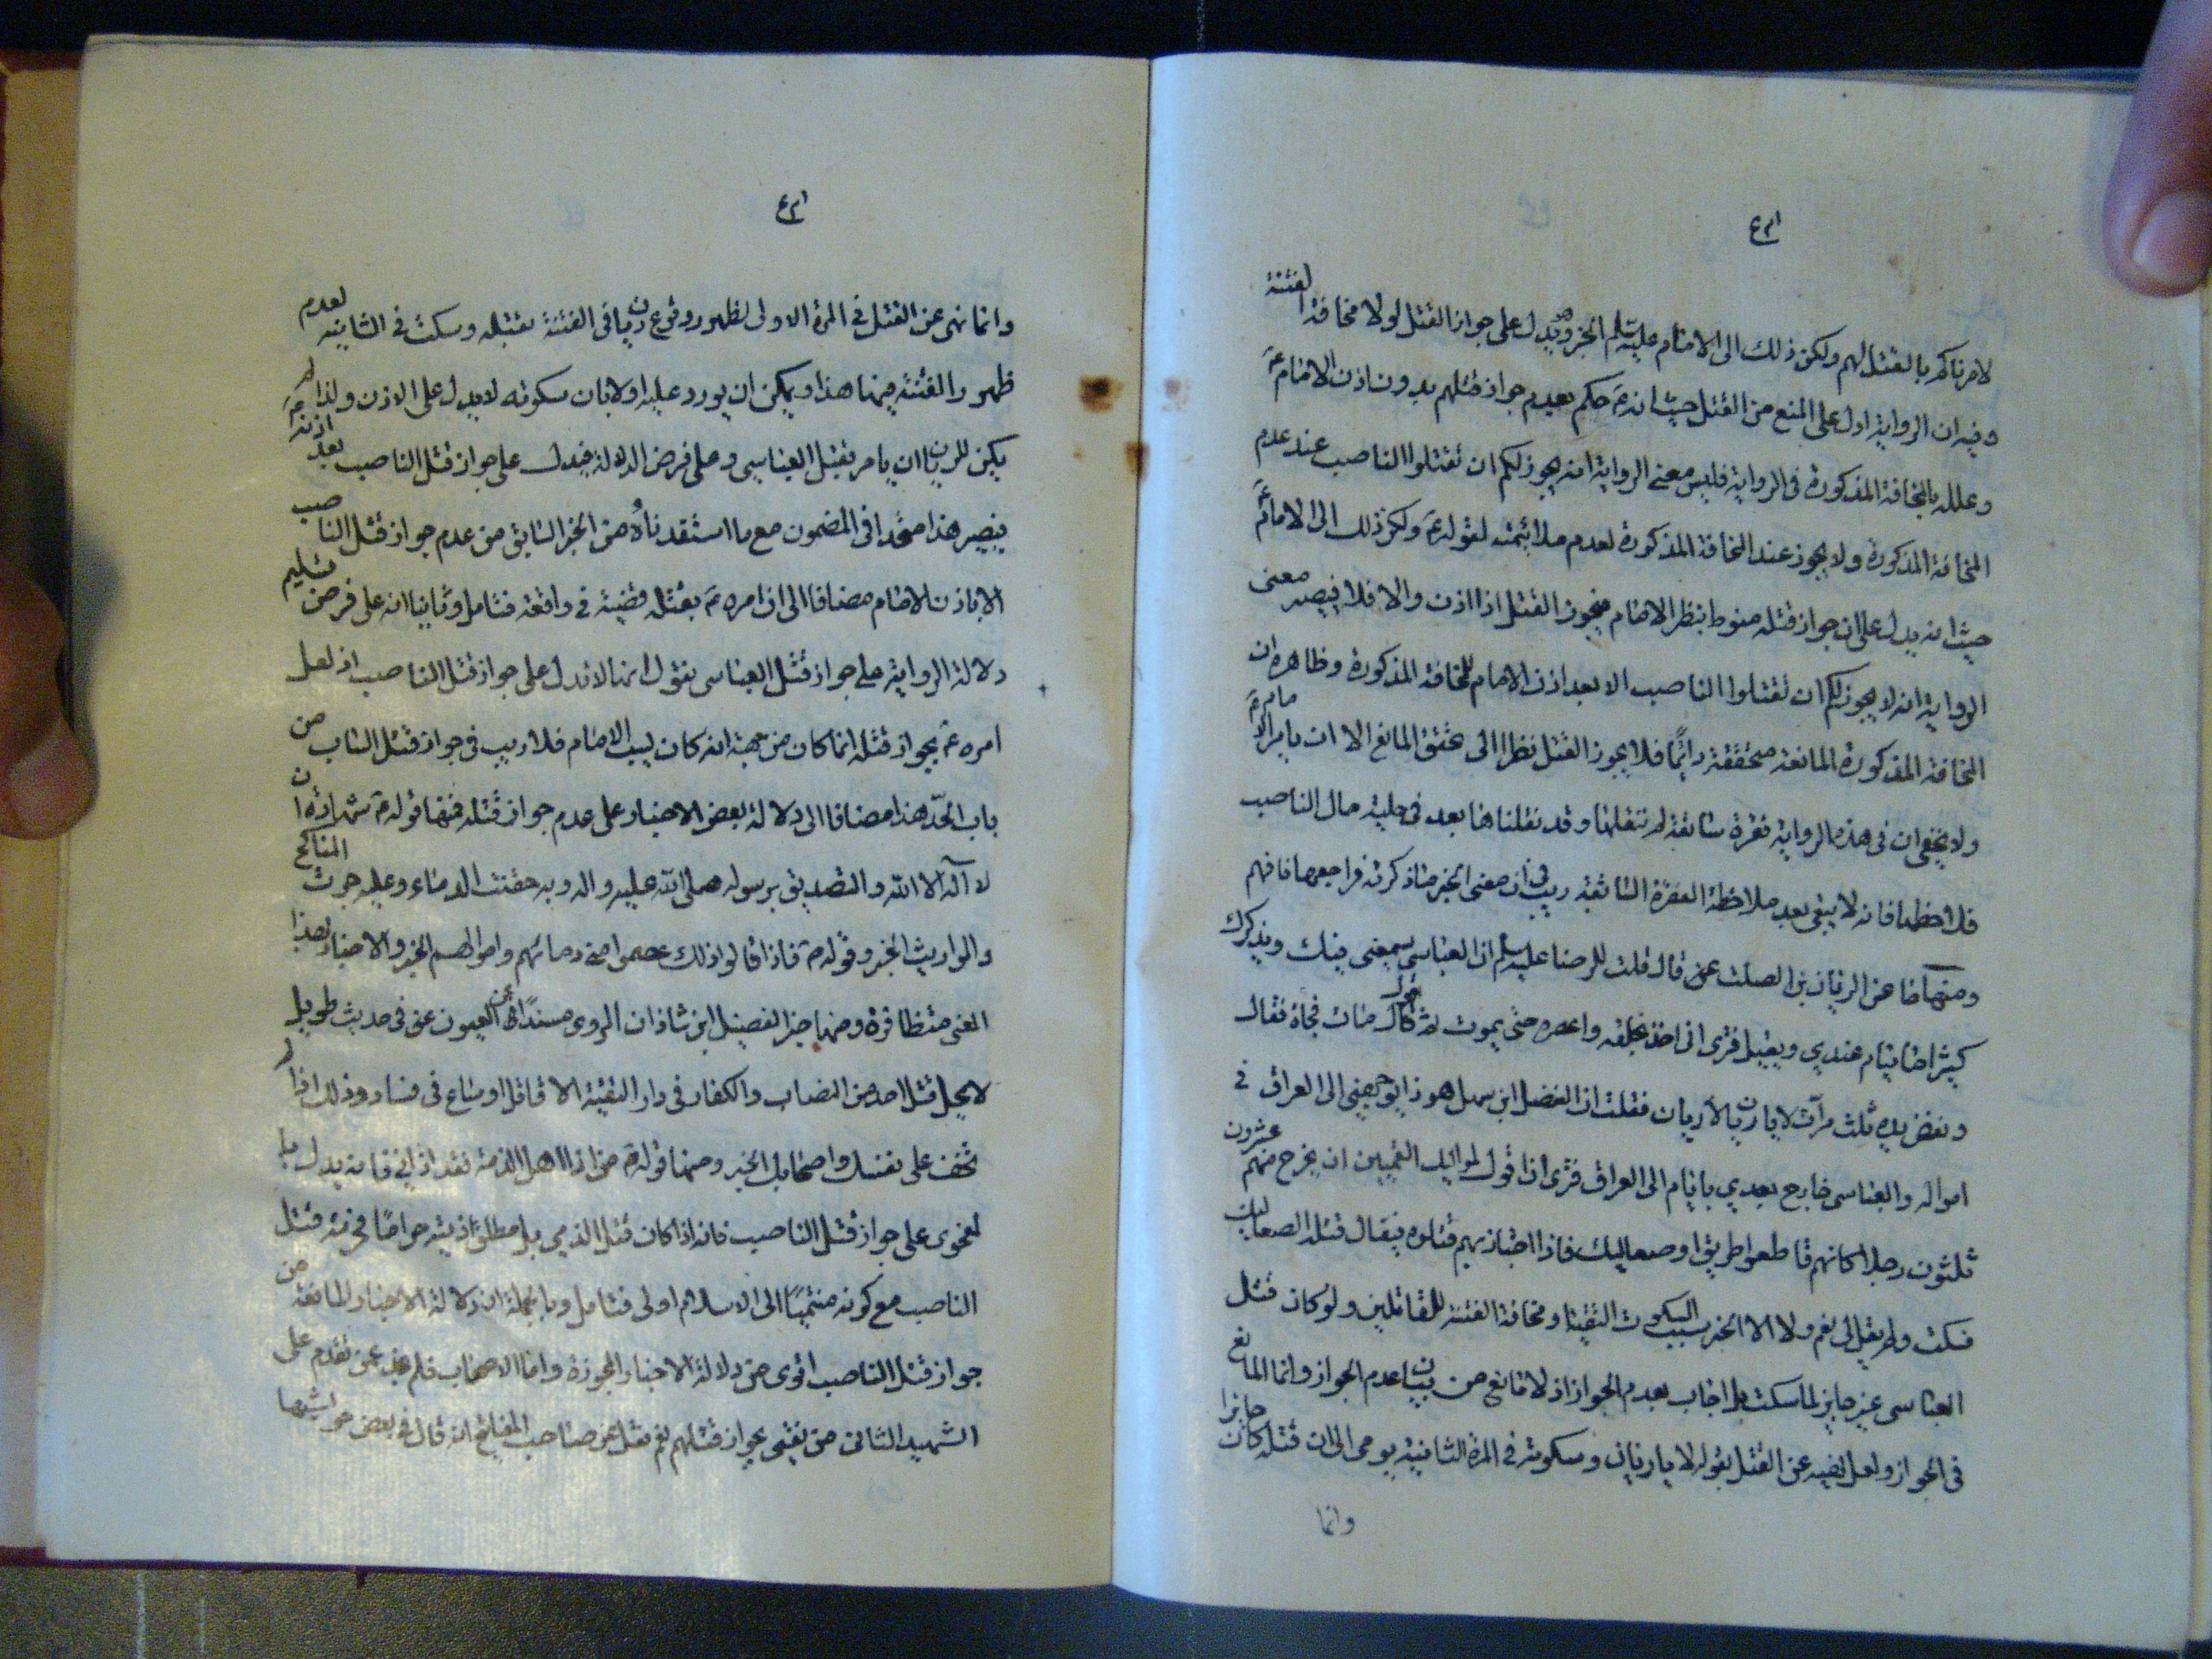 لامرناكم بالقتل لهم ولكن ذلك الى الامام عليه السلم الخبر وهو يدل على جواز القتل لولا مخافة الفتنة
وفيه ان الرواية ادل على المنع من القتل حيث انه عَ حكم بعدم جواز قتلهم بدون اذن الامام عَ
وعلله بالمخافة المذكورة فى الرواية فليس معنى الرواية انه يجوز لكم ان تقتلوا الناصب عند عدم
المخافة المذكورة ولا يجوز عند المخافة المذكورة لعدم ملائمته لقوله عَ ولكن ذلك الى الامام عَ
حيث انه يدل على ان جواز قتله منوط بنظر الامام فيجوز القتل اذا اذن والا فلا فيصير معنى
الرواية انه لا يجوز لكم ان تقتلوا الناصب الا بعد اذن الامام للمخافة المذكورة وظاهره ان
المخافة المذكورة المانعة متحققة دائمًا فلا يجوز القتل نظرا الى تحقق المانع الا ان يامر الامام عَ
ولا يخفى ان فى هذه الرواية فقرة سابقة لم ننقلها وقد نقلناها بعد فى حلية مال الناصب
فلاحظها فانه لا يبقى بعد ملاحظة الفقرة السابقة ريب فى ان معنى الخبر ما ذكرته فراجعها فافهم
ومنها ما عن الريان بن الصلت عن قال قلت للرضا عليه السلم ان العباسى يسمعنى فيك ويذكرك
كثيرا ما ينام عندي ويقيل فترى انى اخذ بحلقه واعصره حتى يموت ثم اقول مات فجاة فقال
ونفض يده ثلث مرآت لا يا ريان لا يا ريان فقلت ان الفضل ابن سهل هو ذا يوجهنى الى العراق فى
امواله والعباسى خارج بعدي بايام الى العراق فترى ان اقول لمواليك القميين ان يخرج منهم عشرون
ثلثون رجلا كانهم قاطعوا طريق او صعاليك فاذا اجتاز بهم قتلوه فيقال قتله الصعاليك
فسكت ولم يقل لى نعم ولا لا الخبر بسبب السكوت التقية او مخافة الفتنة للقاتلين ولو كان قتل
العباسى غير جايز لما سكت بل اجاب بعدم الجواز اذ لا مانع من بيان عدم الجواز وانما المانع
فى الجواز ولعل نهيه عن القتل بقوله لا يا ريان وسكوته فى المرة الثانية يومى الى ان قتله كان جايزا
وانما
وانما نهى عن القتل فى المرة الاولى لظهور وقوع ريان فى الفتنة بقتله وسكت فى الثانية لعدم
ظهور الفتنة فيها هذا ويمكن ان يورد عليه اولا بان سكوته لا يدل على الاذن ولذا لم
يكن للريان ان يامر بقتل العباسى وعلى فرض الدلالة فيدل على جواز قتل الناصب بعد اذنه عَ
فيصير هذا متحدا فى المضمون مع ما استفدناه من الخبر السابق من عدم جواز قتل الناصب
الا باذن الامام مضافا الى ان امره عَ بقتله قضية فى واقعة فتامل وثانيا انه على فرض تسليم
دلالة الرواية على جواز قتل العباسى نقول انها لا تدل على جواز قتل الناصب اذ لعل
امره عَ بجواز قتله انما كان من جهة انه كان يسب الامام فلا ريب فى جواز قتل الساب من
باب الحدّ هذا مضافا الى دلالة بعض الاخبار على عدم جواز قتله فمنها قوله عَ شهادة ان
لا آله الا الله والتصديق برسوله صلى الله عليه واله وبه حقنت الدماء وعليه جرت المناكح
والمواريث الخبر وقوله عَ فاذا قالوا ذلك عصموا منى دمائهم واموالهم الخبر والاخبار بهذا
المعنى متظافرة ومنها خبر الفضيل ابن شاذان المروى مسندًا عن العيون عن فى حديث طويل
لا يحل قتل احد من النصاب والكفار فى دار التقية الا قاتل او ساع فى فساد وذلك اذا لم
تخف على نفسك واصحابك الخبر ومنها قوله عَ من اذا اهل الذمة فقد اذانى فانه يدل با
لفحوى على جواز قتل الناصب فانه اذا كان قتل الذمي بل مطلق اذيته حراما فحرمة قتل
الناصب مع كونه منتميًا الى الاسلام اولى فتامل وبالجملة ان دلالة الاخبار المانعة من
جواز قتل الناصب اقوى من دلالة الاخبار المجوزة واما الاصحاب فلم نجد عمن تقدم على
الشهيد الثانى من يفتى بجواز قتلهم نعم نقل عن صاحب المفاتيح انه قال فى بعض حواشيها